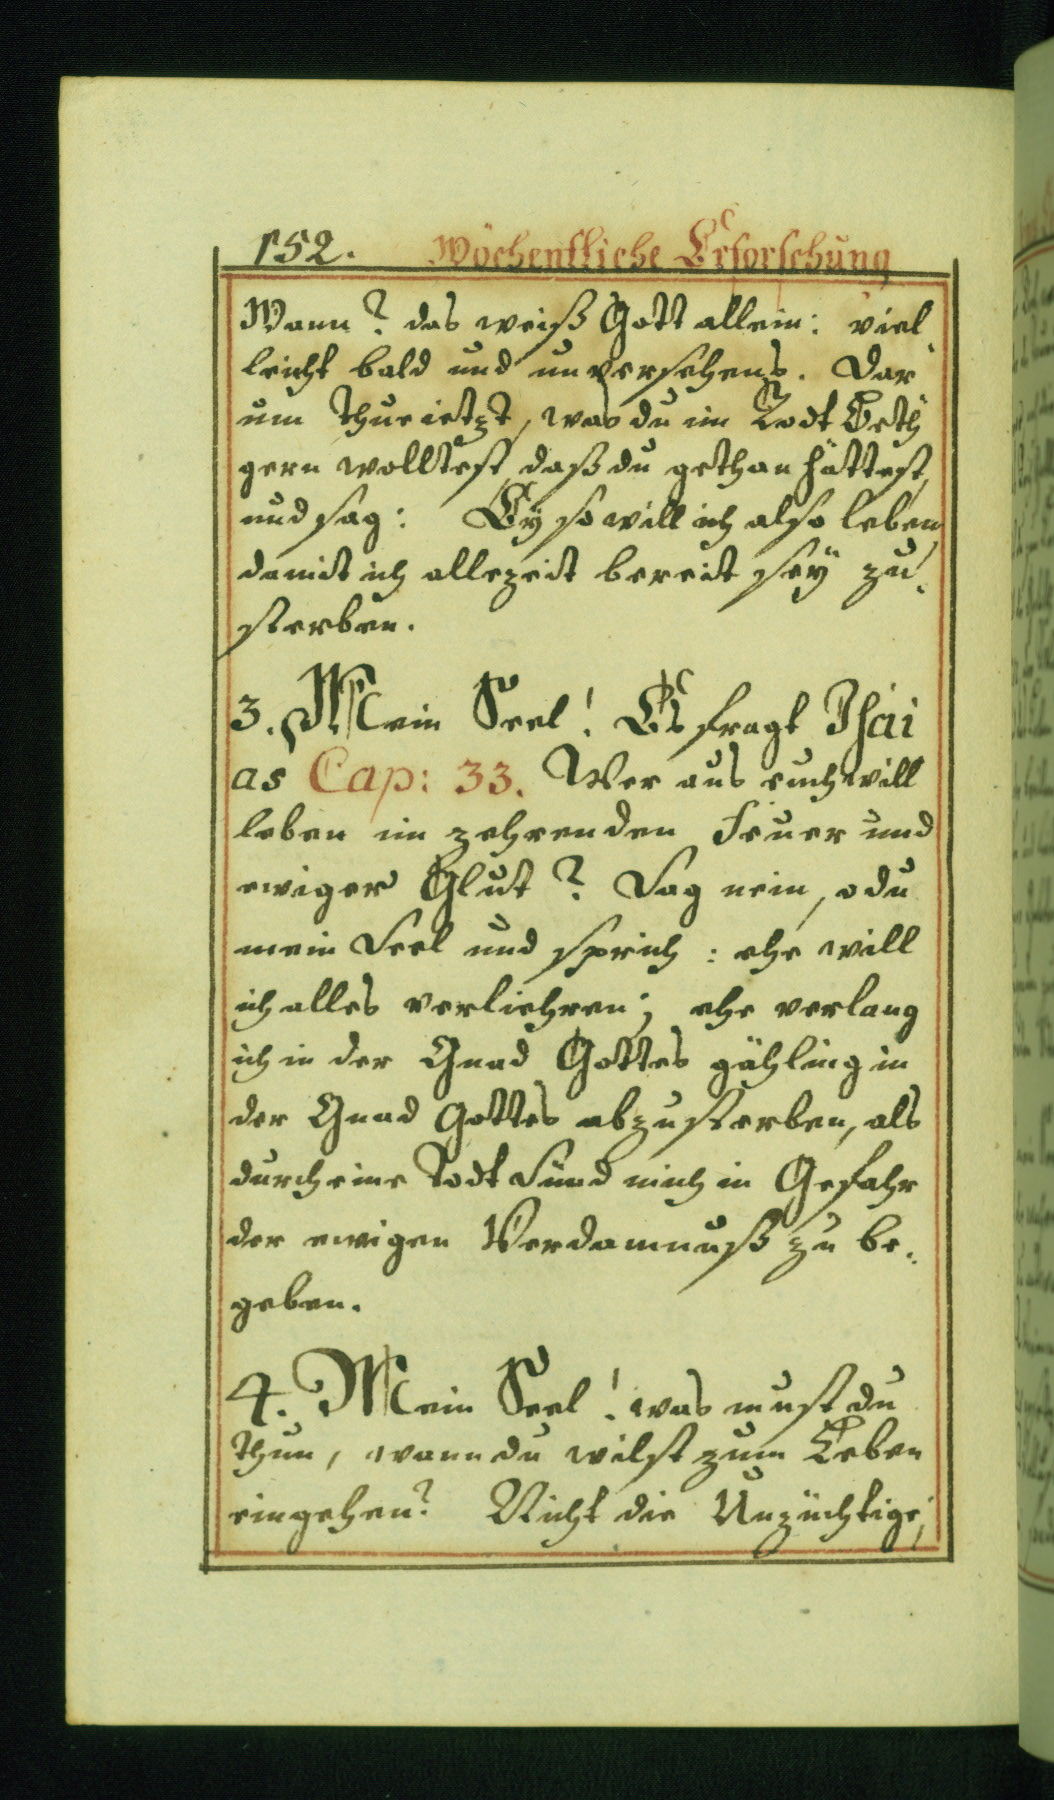 152. Wöchentliche Erforschung
Wann? das weiß Gott allein: viel
leicht bald und unversehens. Dar
um thue ietzt, was du im Todt Beth
gern wolltest, daß du gethan hättest,
und sag: Ey so will ich also leben
damit ich allezeit bereit seÿ zu
sterben.
3. Mein Seel! Es fragt Isai
as Cap: 33. Wer aus euch will
leben im zehrenden Feuer und
ewiger Glut? Sag nein, o du
mein Seel und sprich: ehe will
ich alles verliehren; ehe verlang
ich in der Gnad Gottes gähling in
der Gnad Gottes abzusterben, als
durch eine Todt Sünd mich in Gefahr
der ewigen Verdamnuß zu be¬
geben.
4. Mein Seel! was must du
thun, wann du wilst zum Leben
eingehen? Nicht die Unzüchtige;